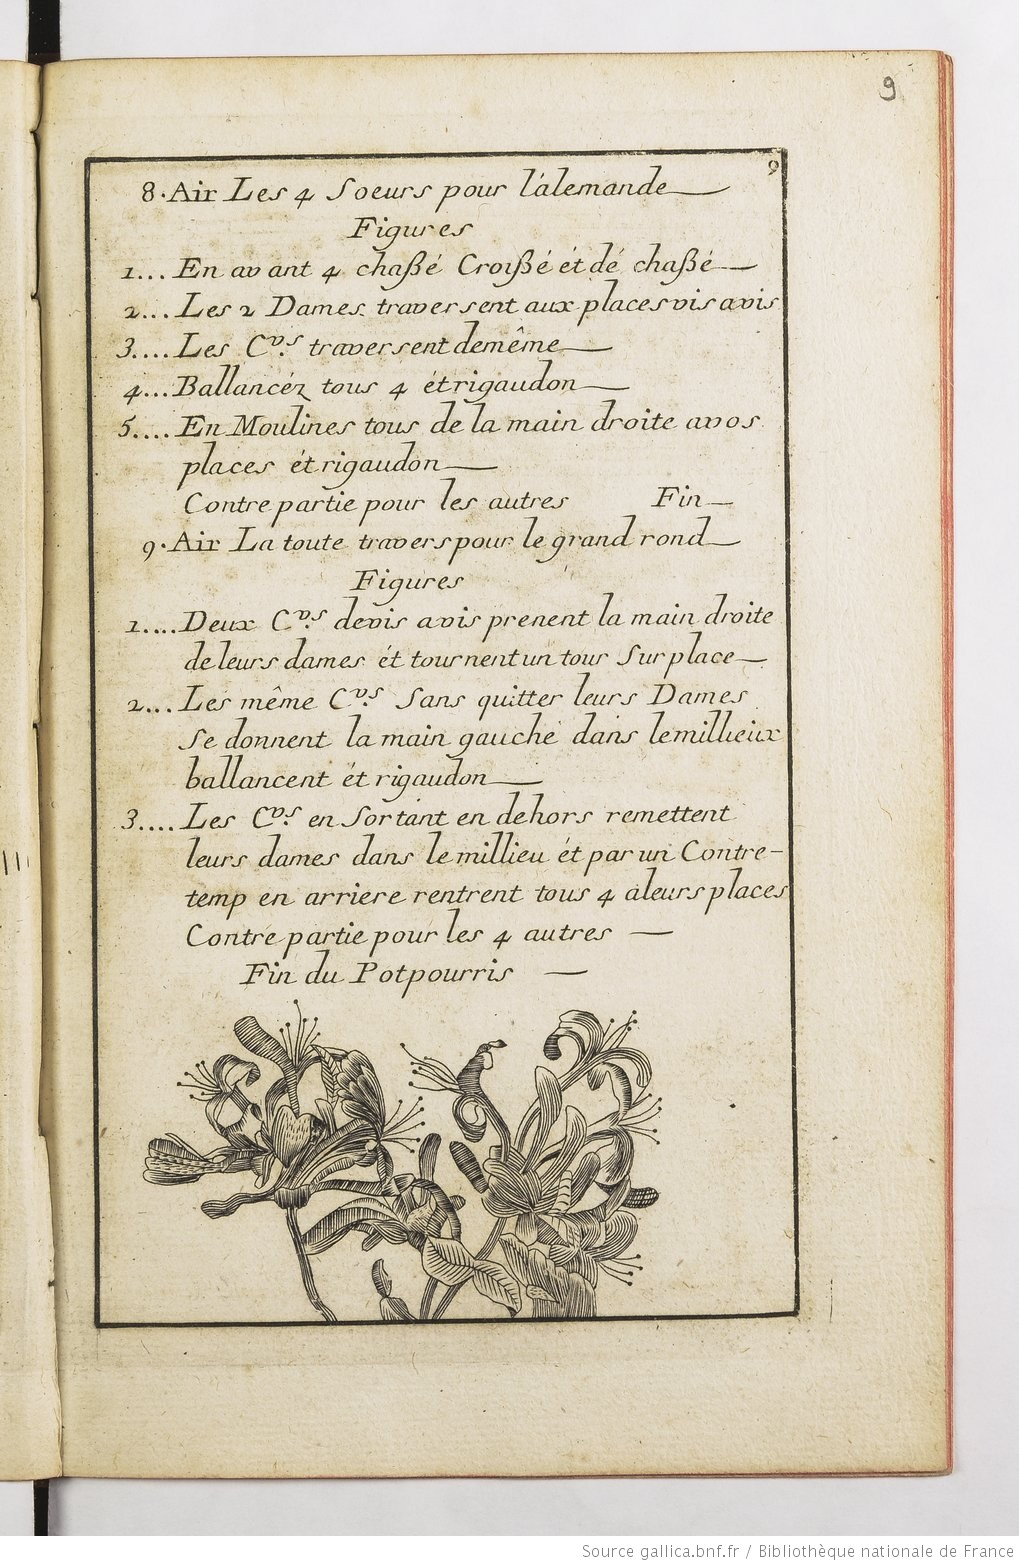 9
9
8. Air Les 4 Soeurs pour l'alemande
Figures
1... En avant 4 chaßé Croißé ét dé chaßé
2... Les 2 Dames traversent aux places vis avis
3.... Les C.vs traversent demême
4... Ballancéz tous 4 ét rigaudon
5.... En Moulines tous de la main droite avos
places ét rigaudon
Contre partie pour les autres Fin
9. Air La toute travers pour le grand rond
Figures
1.... Deux C.vs devis avis prenent la main droite
de leurs dames ét tournent un tour Sur place
2... Les même C.vs Sans quitter leurs Dames
Se donnent la main gauche dans le millieux
ballancent ét rigaudon
3.... Les C.vs en Sortant en dehors remettent
leurs dames dans le millieu ét par un Contre-
temp en arriere rentrent tous 4 àleurs places
Contre partie pour les 4 autres
Fin du Potpourris
Source gallica.bnf.fr / Bibliothèque nationale de France